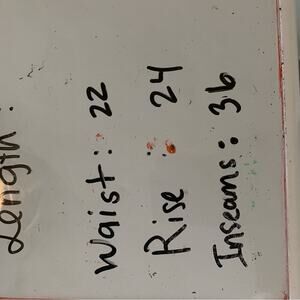 Length:
Waist: 22
Rise: 24
Inseams: 36